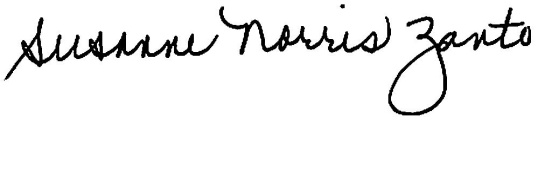 Susanne Norris Zanto